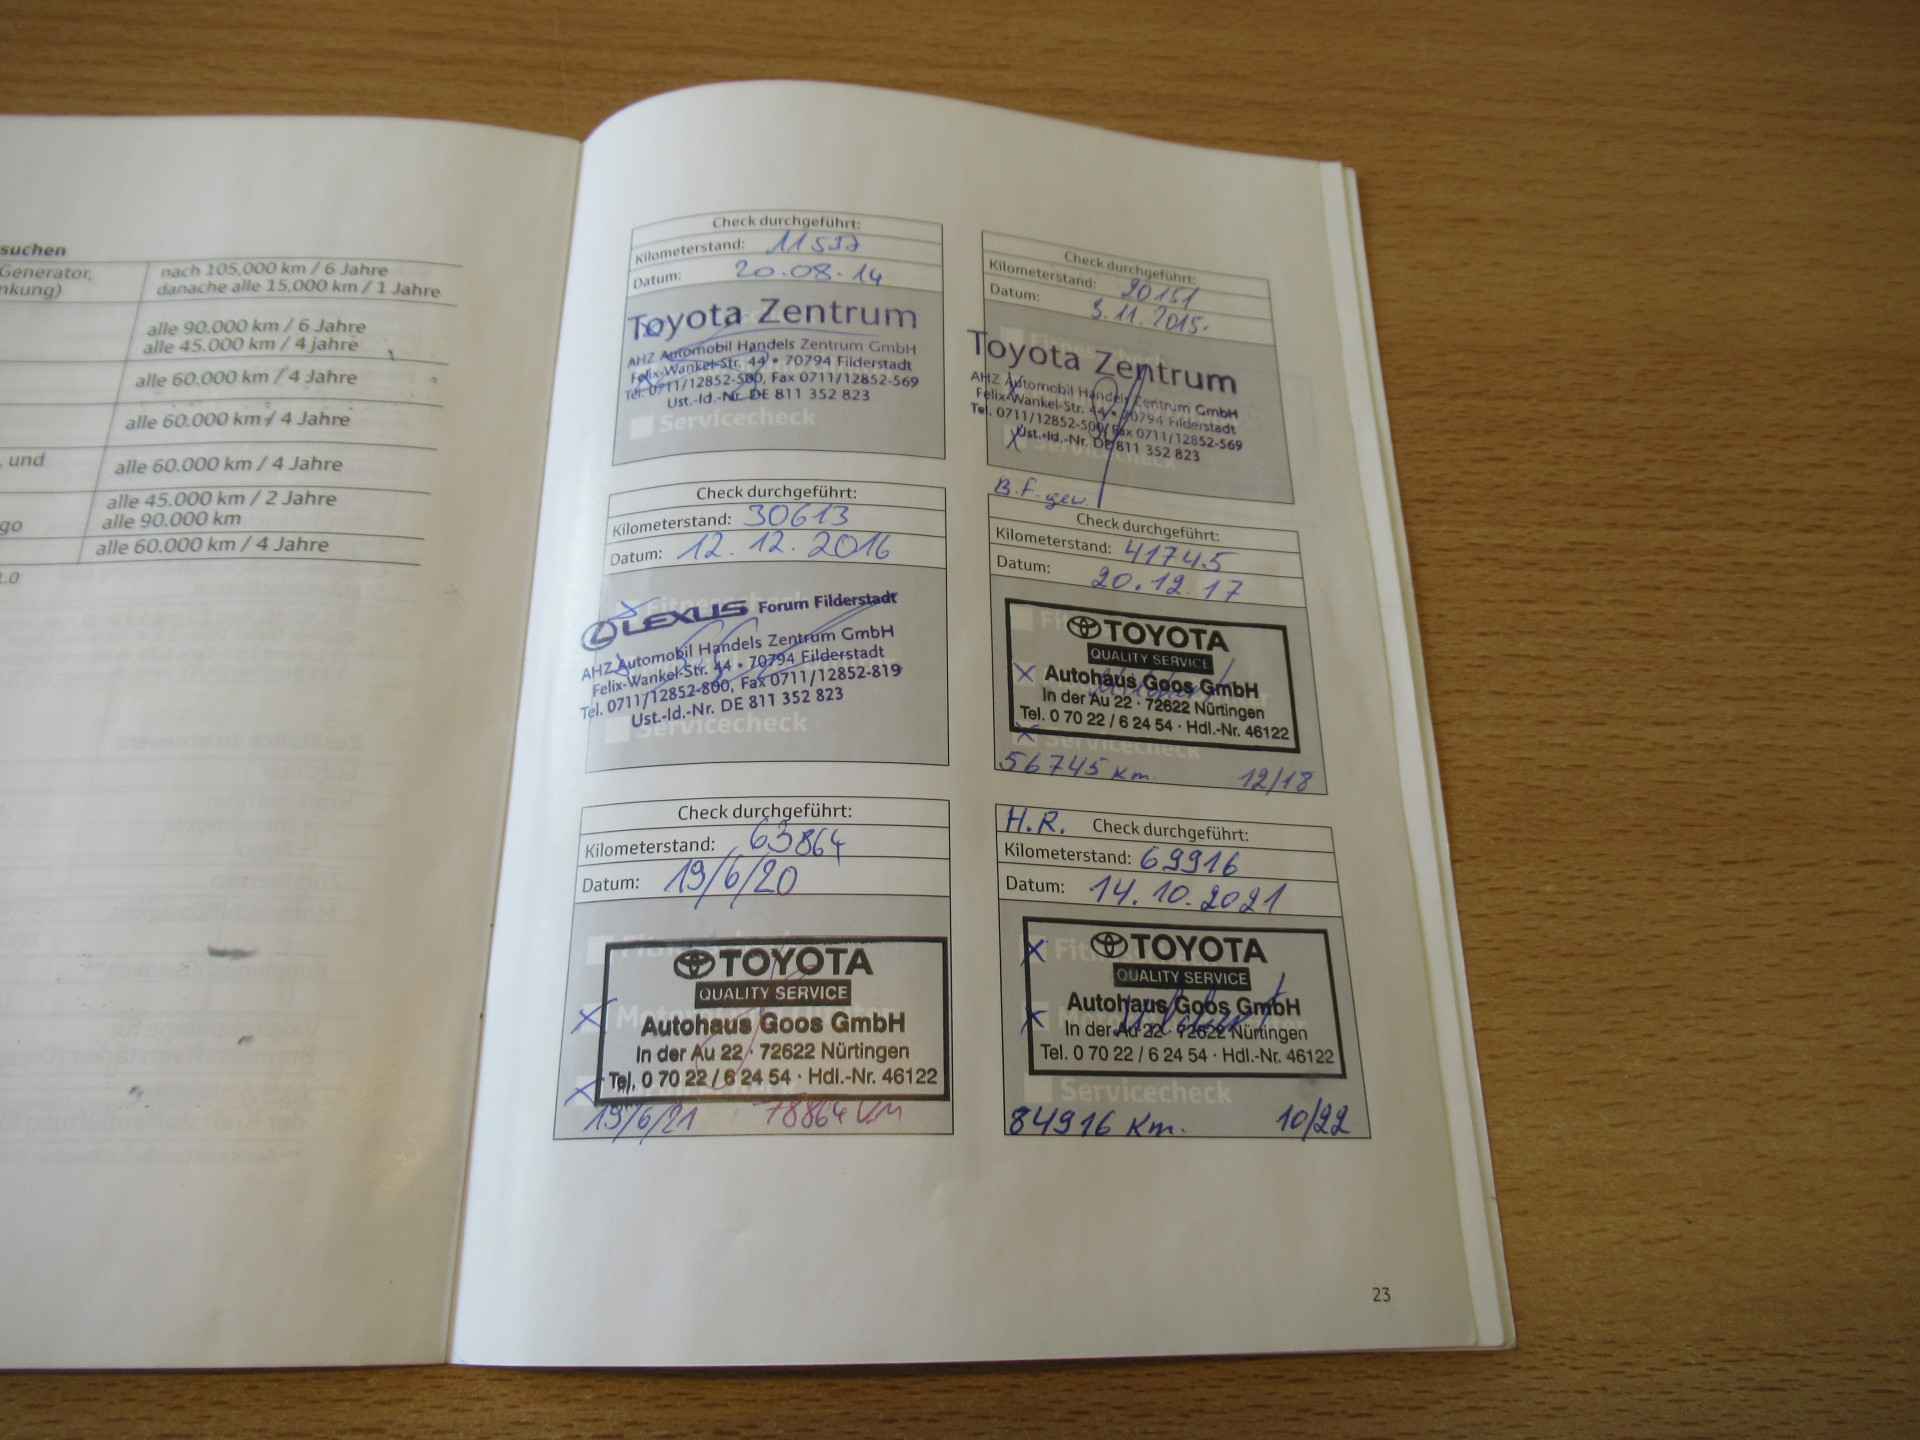 suchen
Generator, nach 105,000 km / 6 Jahre
nkung) danache alle 15,000 km / 1 Jahre
alle 90.000 km / 6 Jahre
alle 45.000 km / 4 jahre
alle 60.000 km / 4 Jahre
alle 60.000 km / 4 Jahre
, und alle 60.000 km / 4 Jahre
alle 45.000 km / 2 Jahre
go alle 90.000 km
alle 60.000 km / 4 Jahre
Check durchgeführt:
Kilometerstand: 11597
Datum: 20.08.14
Toyota Zentrum
AHZ Automobil Handels Zentrum GmbH
Felix-Wankel-Str. 44 • 70794 Filderstadt
Tel. 0711/12852-500, Fax 0711/12852-569
Ust.-Id.-Nr. DE 811 352 823
Servicecheck
Check durchgeführt:
Kilometerstand: 20151
Datum: 3.11.2015.
Toyota Zentrum
AHZ Automobil Handels Zentrum GmbH
Felix-Wankel-Str. 44 • 70794 Filderstadt
Tel. 0711/12852-500, Fax 0711/12852-569
Ust.-Id.-Nr. DE 811 352 823
Servicecheck
B.F. gew.
Check durchgeführt:
Kilometerstand: 30613
Datum: 12.12.2016
Fitnesscheck
LEXUS Forum Filderstadt
AHZ Automobil Handels Zentrum GmbH
Felix-Wankel-Str. 44 • 70794 Filderstadt
Tel. 0711/12852-800, Fax 0711/12852-819
Ust.-Id.-Nr. DE 811 352 823
Servicecheck
Check durchgeführt:
Kilometerstand: 41745
Datum: 20.12.17
TOYOTA
QUALITY SERVICE
Autohaus Goos GmbH
In der Au 22 · 72622 Nürtingen
Tel. 0 70 22 / 6 24 54 · Hdl.-Nr. 46122
Servicecheck
56745 km. 12/18
Check durchgeführt:
Kilometerstand: 63864
Datum: 19/6/20
TOYOTA
QUALITY SERVICE
Autohaus Goos GmbH
In der Au 22 · 72622 Nürtingen
Tel. 0 70 22 / 6 24 54 · Hdl.-Nr. 46122
19/6/21 78864 KM
H.R. Check durchgeführt:
Kilometerstand: 69916
Datum: 14.10.2021
TOYOTA
QUALITY SERVICE
Autohaus Goos GmbH
In der Au 22 · 72622 Nürtingen
Tel. 0 70 22 / 6 24 54 · Hdl.-Nr. 46122
Servicecheck
84916 Km. 10/22
23